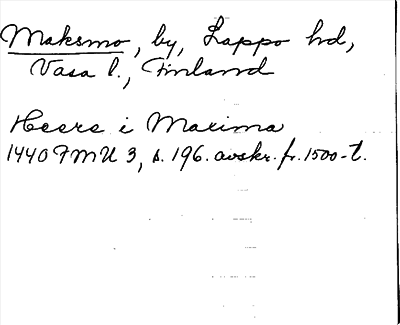 Maksmo, by, Lappo hd,
Vasa l., Finland
Heere i Maxima
1440 FMU 3, s. 196. avskr. fr. 1500-t.